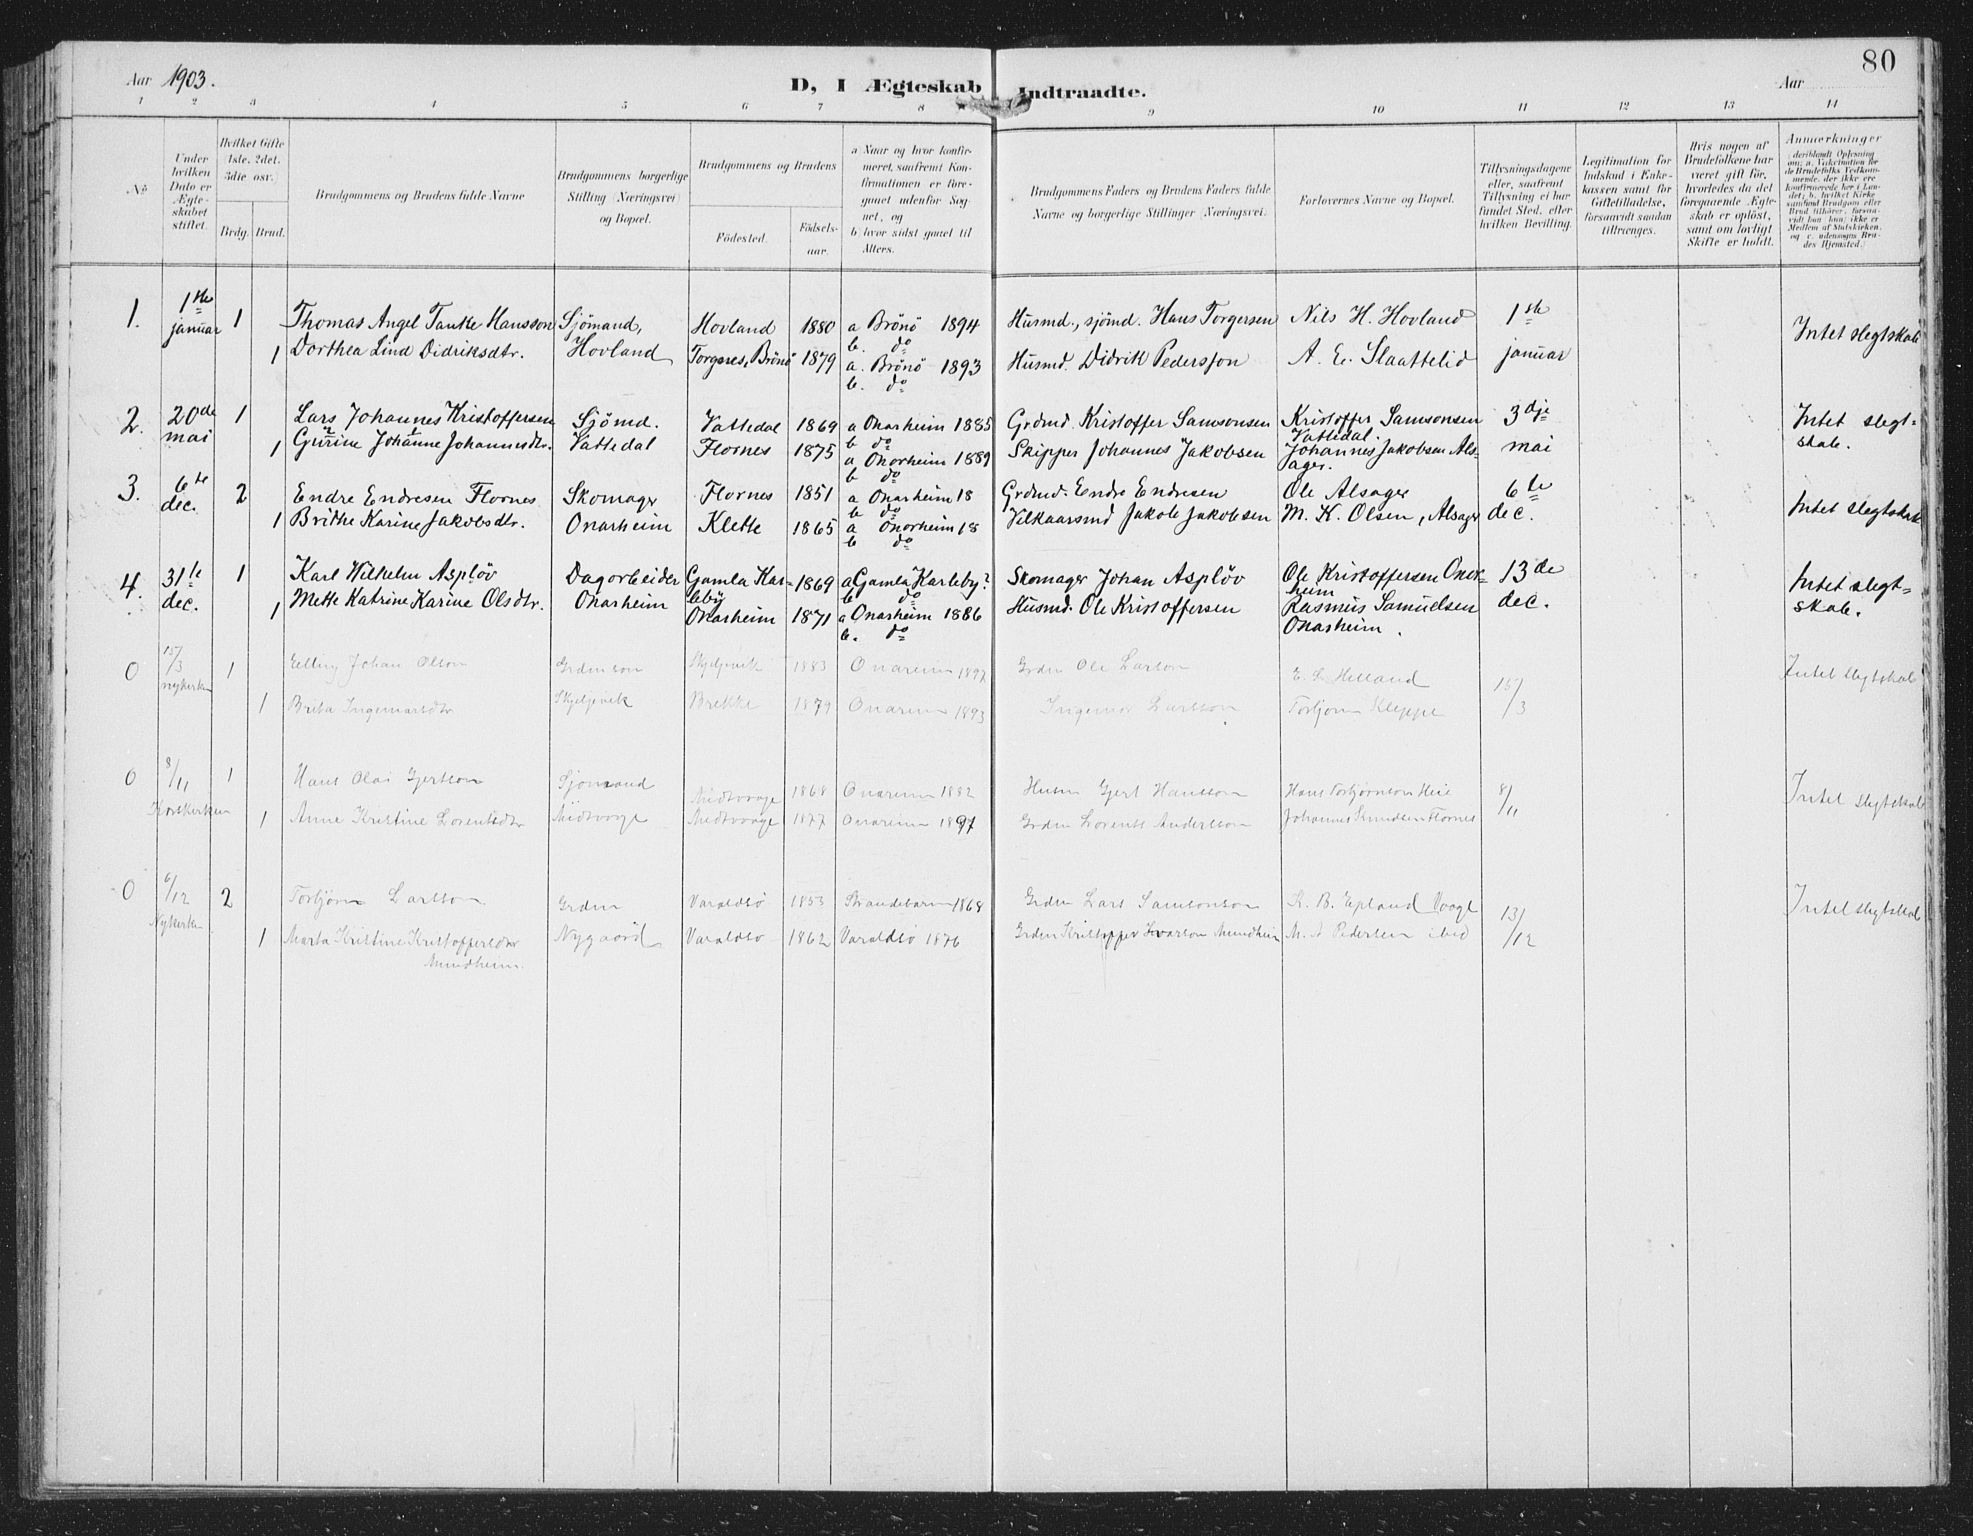 80
Aar 1903.
D, I Ægteskab Indtraadte.
Aar
1 2 3 4 5 6 7 8 9 10 11 12 13 14
No.
Under hvilken Dato er Ægteskabet stiftet.
Hvilket Gifte 1ste, 2det, 3die osv.
Brdg. Brud.
Brudgommens og Brudens fulde Navne
Brudgommens borgerlige Stilling (Næringsvei) og Bopæl.
Brudgommens og Brudens
Fødested.
Fødselsaar.
a Naar og hvor konfirmeret, saafremt Konfirmationen er foregaaet udenfor Sognet, og
b hvor sidst gaaet til Alters.
Brudgommens Faders og Brudens Faders fulde Navne og borgerlige Stillinger (Næringsvei).
Forlovernes Navne og Bopæl.
Tillysningsdagene eller, saafremt Tillysning ei har fundet Sted, efter hvilken Bevilling.
Legitimation for Indskud i Enkekassen samt for Giftetilladelse, forsaavidt saadan tiltrænges.
Hvis nogen af Brudefolkene har været gift før, hvorledes da det foregaaende Ægteskab er opløst, samt om lovligt Skifte er holdt.
Anmærkninger
(deriblandt Oplysning om: a. Vakcination for de Brudefolks Vedkommende, der ikke ere konfirmerede her i Landet; b. hvilket Kirkesamfund Brudgom eller Brud tilhører, forsaavidt han (hun) ikke er Medlem af Statskirken, og c. udensogns Brudes Hjemsted.)
1. 1ste januar 1 Thomas Angel Tanke Hansson Sjömand, Hovland 1880 a Brönö 1894 Husmd., sjömd. Hans Torgersen Nils H. Hovland 1ste januar Intet slegtskab
b. do
1 Dorthea Lind Didriksdtr. Hovland Torgnes, Brönö 1879 a. Brönö 1893 Husmd. Didrik Pedersson A. E. Slaattelid
b. do
2. 20de mai 1 Lars Johannes Kristoffersen Sjömd. Vattedal 1869 a Onarheim 1885 Grdmd. Kristoffer Samsonsen Kristoffer Samsonsen Vattedal. 3dje mai Intet slegtskab.
b do
1 Gurine Johanne Johannesdtr. Vattedal Flornes 1875 a Onarheim 1889 Skipper Johannes Jakobsen Johannes Jakobsen Alsager.
b do
3. 6te dec. 2 Endre Endresen Flornes Skomager Flornes 1851 a Onarheim 18 Grdmd. Endre Endresen Ole Alsager 6te dec. Intet slegtskab
b do
1 Brithe Karine Jakobsdtr. Onarheim Klette 1865 a Onarheim 18 Vilkaarsmd Jakob Jakobsen M. K. Olsen, Alsager
b do
4. 31te dec. 1 Karl Wilhelm Asplöv Dagarbeider Gamla Karleby 1869 a Gamla Karleby? Skomager Johan Asplöv Ole Kristoffersen Onarheim 13de dec. Intet slegtskab.
b do
1 Mette Katrine Karine Olsdtr. Onarheim Onarheim 1871 a Onarheim 1886 Husmd. Ole Kristoffersen Rasmus Samuelsen Onarheim.
b. do
0 15/3 Nykerken 1 Elling Johan Olson Grdmson Skjeljevik 1883 Onareim 1897 Grdm Ole Larson E. L. Helland 15/3 Intet slegtskab
1 Brita Ingemarsdtr Skjeljevik Brekke 1879 Onareim 1893 Ingemar Larsson Torbjørn Kleppe
0 8/11 Korskerken 1 Hans Olai Gjertson Sjömand Midtvaage 1868 Onareim 1882 Husm Gjert Hansson Hans Torbjørnson Heie 8/11 Intet slegtskab
1 Anne Kristine Lorentsdtr Midtvaage Midtvaage 1877 Onareim 1897 Grdm Lorents Andersson Johannes Knudsen Flornes
0 6/12 Nykerken 2 Torbjørn Larsson Grdm Varaldsö 1853 Strandebarm 1868 Grdm Lars Samsonson K. B. Epland Vaagl 13/12 Intet slegtskab
1 Marta Kristine Kristoffersdtr Mundheim. Nygaard Varaldsö 1862 Varaldsö 1876 Grdm Kristoffer Ivarson Mundheim M. A Pedersen ibid